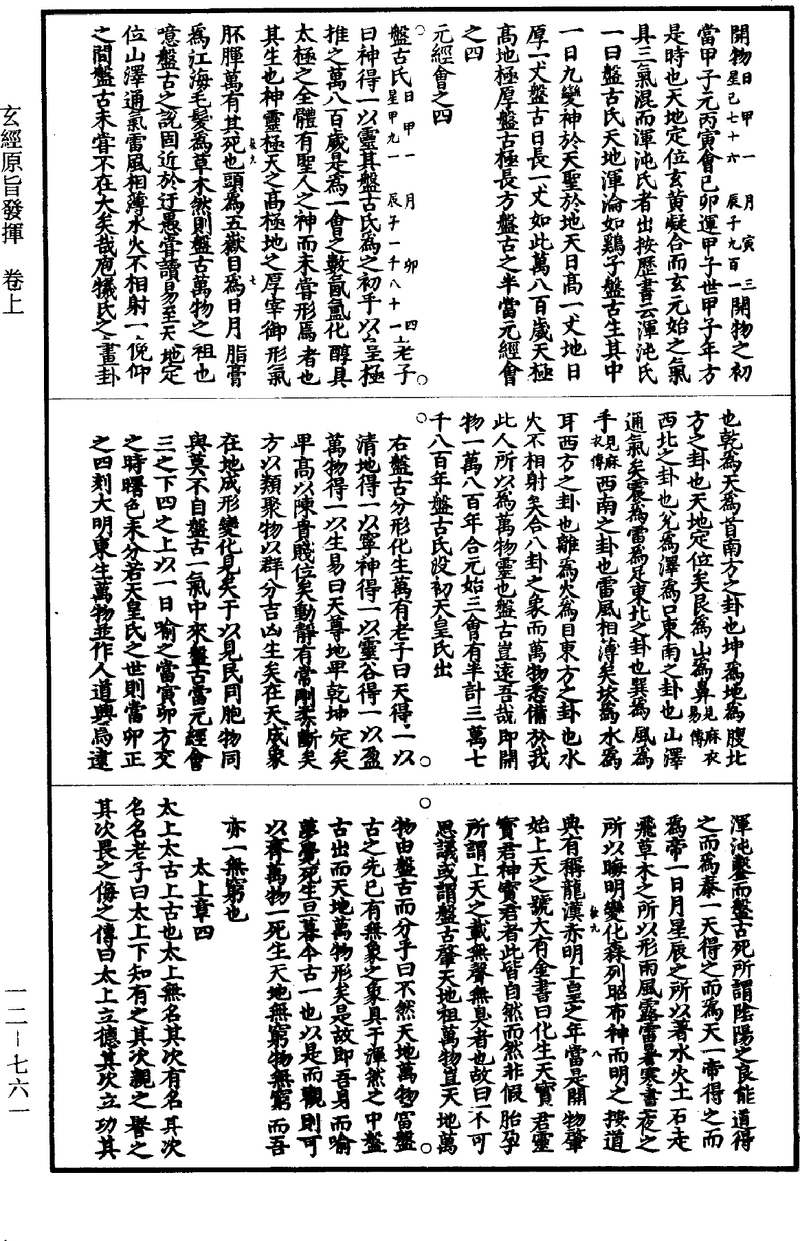 玄經原旨發揮　卷上
開物日甲一　月寅三
星己七十六　辰千九百一開物之初
當甲子元丙寅會己卯運甲子世甲子年方
是時也天地定位玄黃凝合而玄元始之氣
具三氣混而渾沌氏者出按歷書云渾沌氏
一曰盤古氏天地渾淪如鷄子盤古生其中
一日九變神於天聖於地天日高一丈地日
厚一丈盤古日長一丈如此萬八百歲天極
高地極厚盤古極長方盤古之半當元經會
之四
元經會之四
盤古氏日甲一　月卯四
星甲九一　辰子一千八十一上老子
曰神得一以靈其盤古氏爲之初乎以皇極
推之萬八百歲是爲一會之數氤氳化醇具
太極之全體有聖人之神而未嘗形焉者也
其生也神靈極天之高極地之厚宰御形氣
胚腪萬有其死也頭爲五嶽目爲日月脂膏
爲江海毛髮爲草木然則盤古萬物之祖也
噫盤古之說固近於迂愚嘗讀易至天地定
位山澤通氣雷風相薄水火不相射一俛仰
之間盤古未嘗不在大矣哉庖犧氏之畫卦
也乾爲天爲首南方之卦也坤爲地爲腹北
方之卦也天地定位矣艮爲山爲鼻見麻衣易傳
西北之卦也兌爲澤爲口東南之卦也山澤
通氣矣震爲雷爲足東北之卦也巽爲風爲
手見麻衣傳西南之卦也雷風相薄矣坎爲水爲
耳西方之卦也離爲火爲目東方之卦也水
火不相射矣合八卦之象而萬物悉備於我
此人所以爲萬物靈也盤古豈遠吾哉即開
物一萬八百年合元始三會有半計三萬七
千八百年盤古氏沒初天皇氏出
右盤古分形化生萬有老子曰天得一以
清地得一以寧神得一以靈谷得一以盈
萬物得一以生易曰天尊地卑乾坤定矣
卑高以陳貴賤位矣動靜有常剛柔斷矣
方以類聚物以群分吉凶生矣在天成象
在地成形變化見矣于以見民同胞物同
與莫不自盤古一氣中來盤古當元經會
三之下四之上以一日喻之當寅卯方交
之時曙色未分若天皇氏之世則當卯正
之四刻大明東生萬物並作人道興焉逮
渾沌鑿而盤古死所謂陰陽之良能道得
之而爲泰一天得之而爲天一帝得之而
爲帝一日月星辰之所以著水火土石走
飛草木之所以形雨風露雷暑寒晝夜之
所以晦明變化森列昭布神而明之按道
典有稱龍漢赤明上皇之年當是開物肇
始上天之號大有金書曰化生天寶君靈
寶君神寶君者此皆自然而然非假胎孕
所謂上天之載無聲無臭者也故曰不可
思議或謂盤古肇天地祖萬物豈天地萬
物由盤古而分乎曰不然天地萬物當盤
古之先已有無象之象具于渾然之中盤
古出而天地萬物形矣是故即吾身而喻
夢覺死生旦暮今古一也以是而觀則可
以齊萬物一死生天地無窮物無窮而吾
亦一無窮也
太上章四
太上太古上古也太上無名其次有名其次
名名老子曰太上下知有之其次親之譽之
其次畏之侮之傳曰太上立德其次立功其
一二－七六一